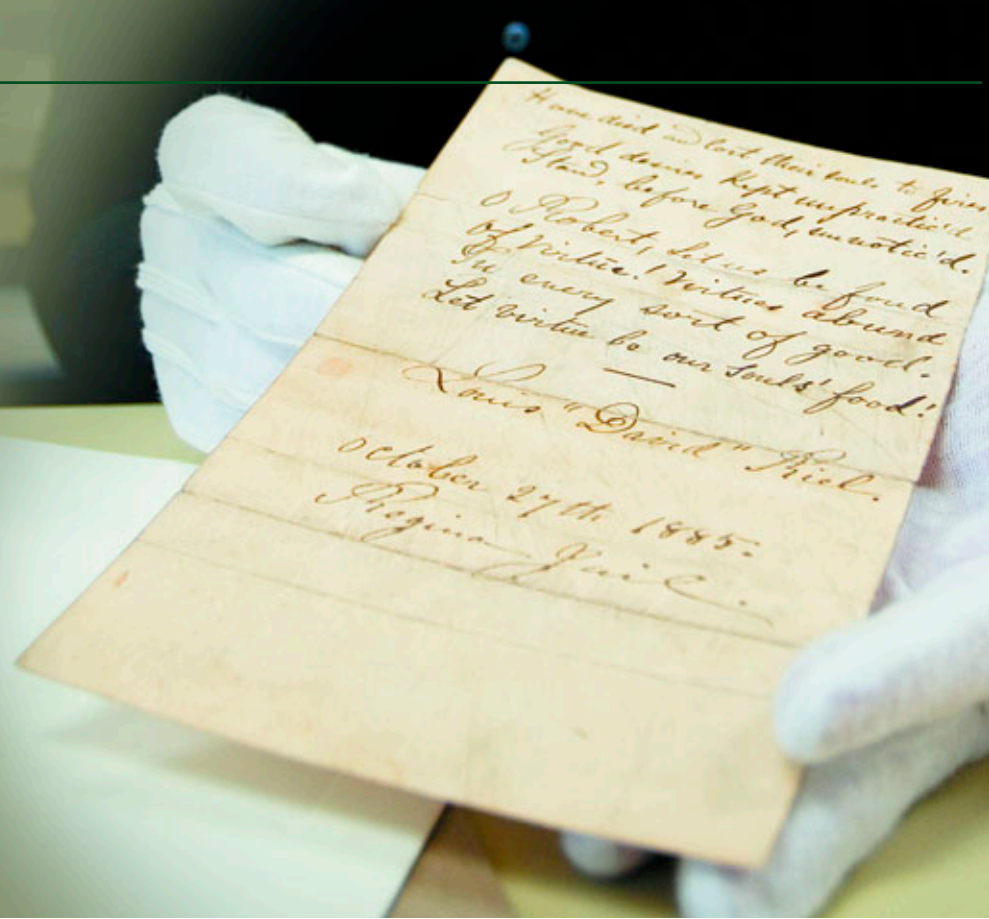 Have died and lost their souls to
Good desires Kept unpractic'd
Stand, before God, unnotic'd.
O Robert, Let us be fond
Of Virtue! Virtues abound
In every sort of good.
Let virtue be our souls' food!
Louis "David" Riel.
October 27th 1885.
Regina Jail.